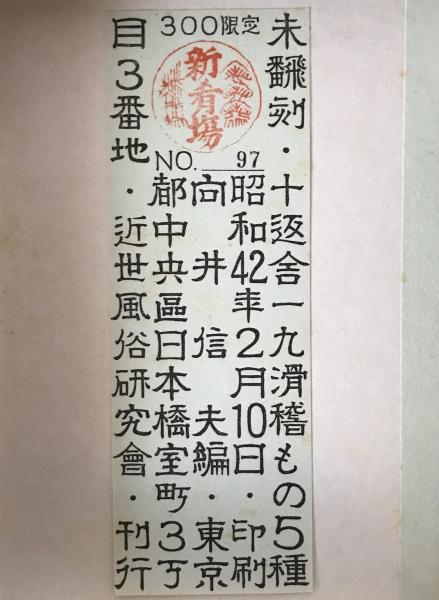 300限定
未飜刻・十返舎一九滑稽もの5種
新肴場
NO. 97
昭和42年2月10日・印刷
向井信夫編・東京
都中央區日本橋室町3丁
目3番地・近世風俗研究會・刊行